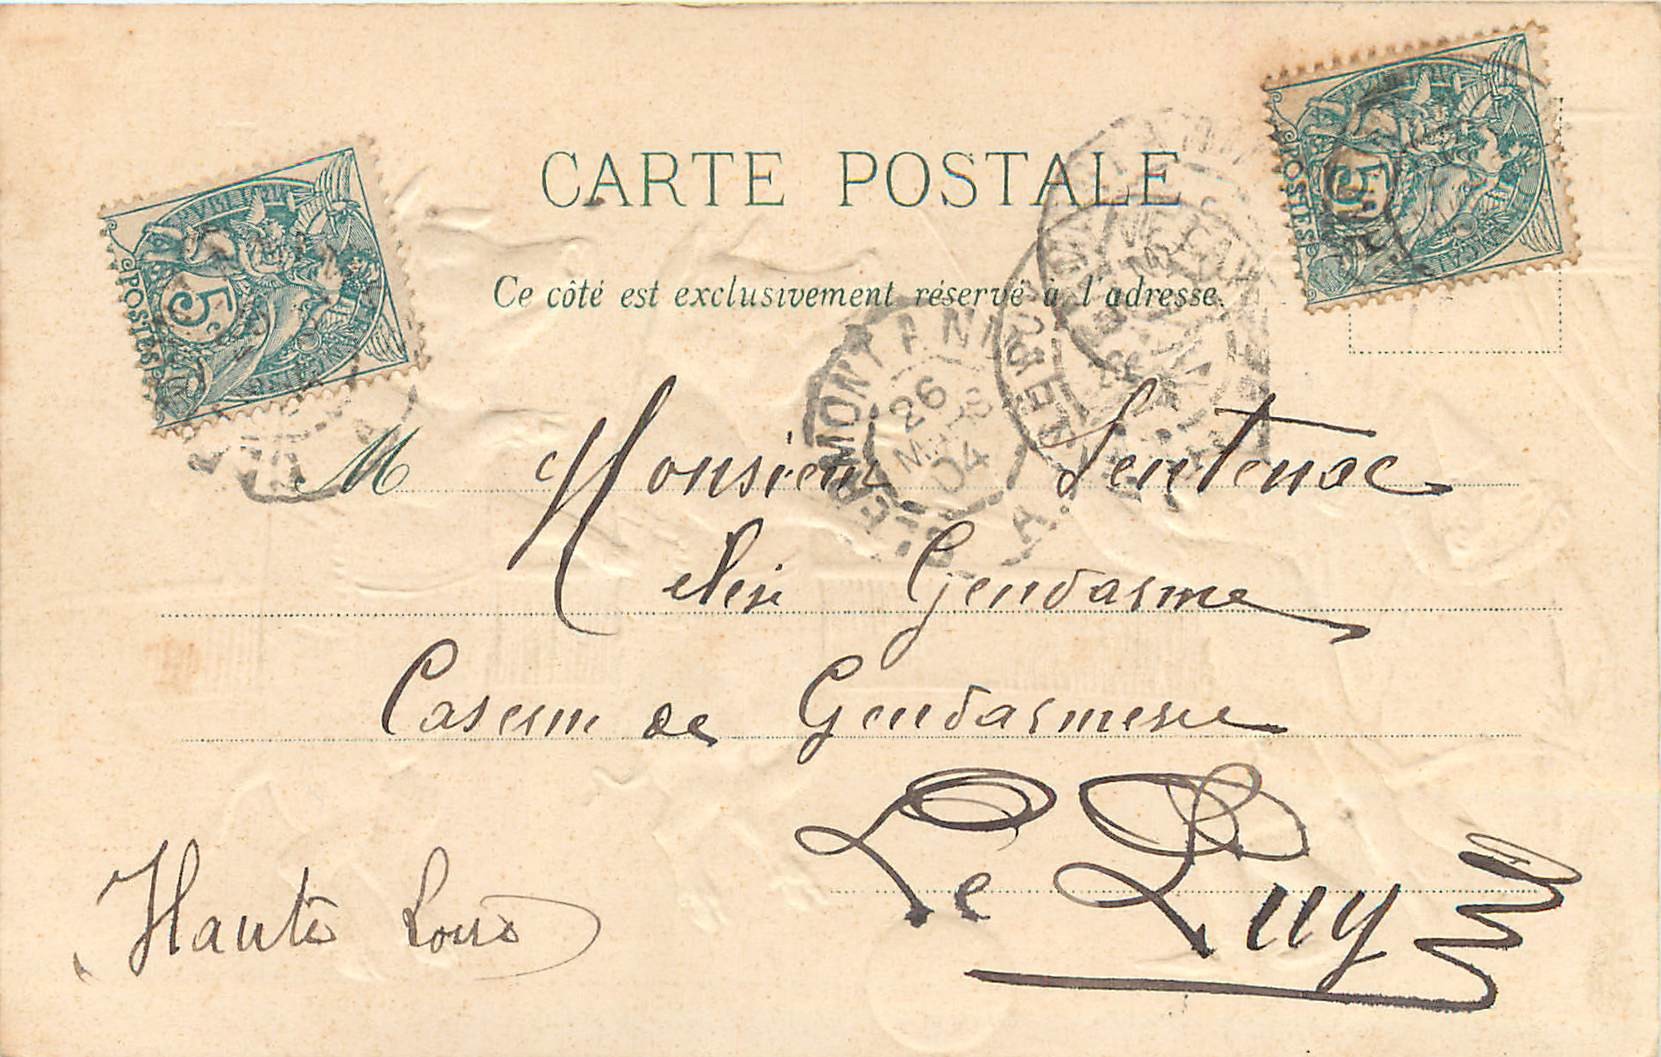 CARTE POSTALE
Ce côté est exclusivement réservé à l'adresse.
POSTES
5
POSTES
5
26
MARS
04
M Monsieur Sentenac
élève Gendarme
Caserne de Gendarmerie
Le Puy
Haute Loire